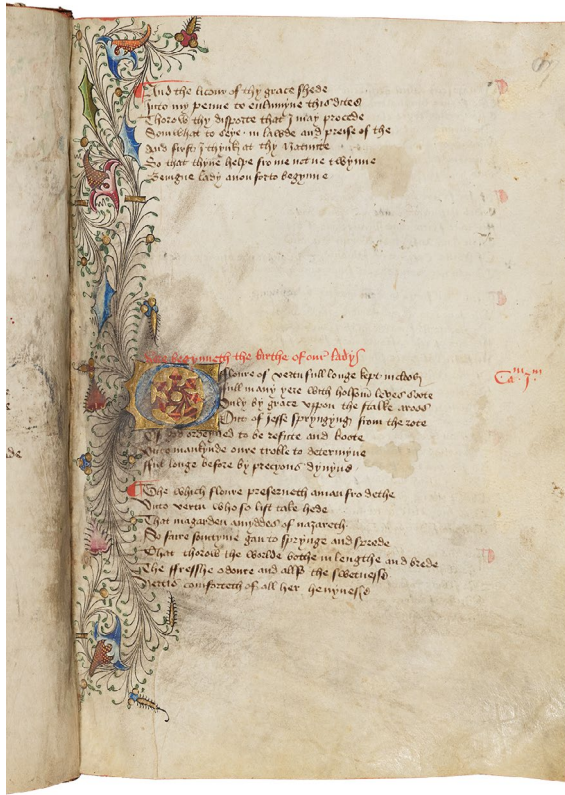 And the licour of thy grace shede
Into my penne to enlumyne this dites
Thorow thy disporte that I may procede
Somwhat to seye in lawde and preise of the
And first I thynk at thy Natiuite
So that thyne helpe fro me not ne twynne
Benigne lady anon forto begynne
begynneth the birthe of our lady
O floure of vertu full longe kept inclos
full many yere with holsom leves sote
Only by grace vppon the stalke aroos
Out of Jesse spryngyng from the rote
Of god ordeyned to be refute and boote
Vnto mankynde oure troble to determyne
full longe before by precyous dynyus
The which floure preserueth aman fro dethe
Vnto vertu who so list take hede
That in agarden amyddes of nazareth
So faire somtyme gan to sprynge and sprede
That thorow the worlde bothe in lengthe and brede
The fresshe odoure and allso the swetnesse
comforteth of all her heuynesse
Ca.m j.m